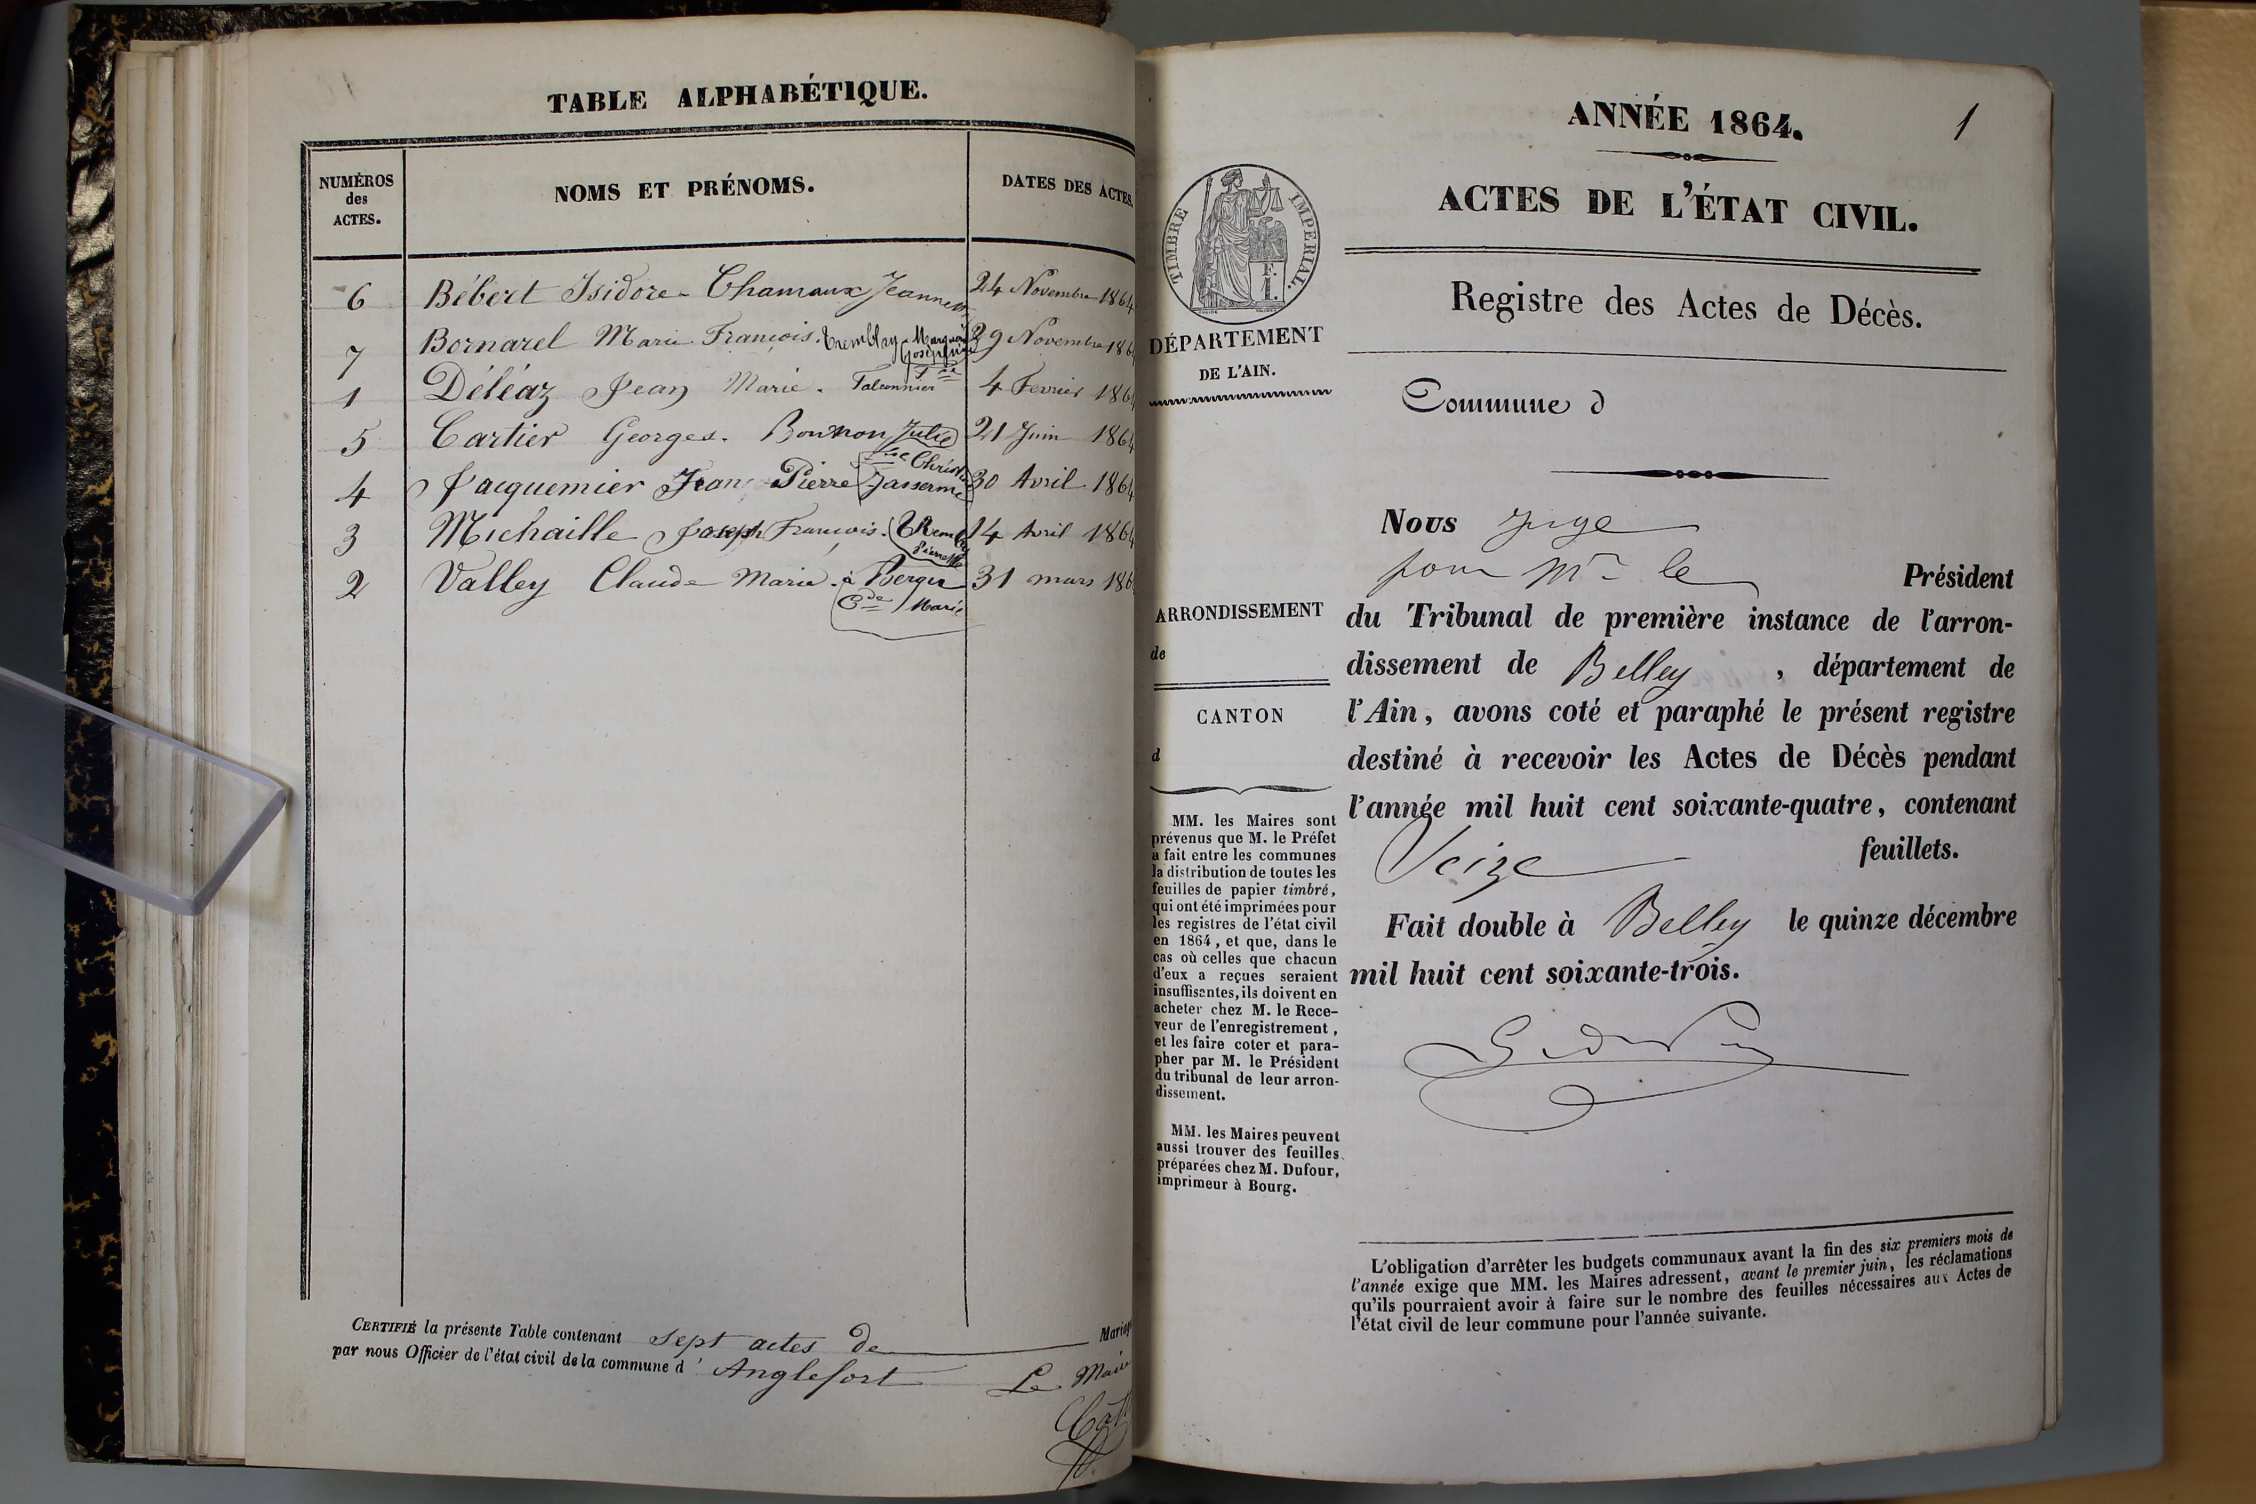 TABLE ALPHABÉTIQUE.
NUMÉROS
des
ACTES.
NOMS ET PRÉNOMS.
DATES DES ACTES.
6 Bébert Isidore - Chamaux Jeannette 24 Novembre 1864
7 Bornarel Marie François. Tremblay Marguerite Joséphine 29 Novembre 186
1 Déléaz Jean Marie. Falconnier 4 Fevrier 1864
5 Cartier Georges. Bonnon Julie 21 Juin 1864
4 Jacquemier Jean Pierre Jasserme 30 Avril 1864
3 Michaille Joseph François. 14 Avril 1864
2 Valley Claude Marie. à Berger Cde Marie 31 mars 186
CERTIFIÉ la présente Table contenant sept actes de Mariag
par nous Officier de l'état civil de la commune d' Anglefort
Le Maire
1
ANNÉE 1864.
ACTES DE L'ÉTAT CIVIL.
Registre des Actes de Décès.
TIMBRE IMPERIAL.
F.
1.
DÉPARTEMENT
DE L'AIN.
Commune d
ARRONDISSEMENT
de
CANTON
d
MM. les Maires sont
prévenus que M. le Préfet
a fait entre les communes
la distribution de toutes les
feuilles de papier timbré,
qui ont été imprimées pour
les registres de l'état civil
en 1864, et que, dans le
cas où celles que chacun
d'eux a reçues seraient
insuffisantes, ils doivent en
acheter chez M. le Rece-
veur de l'enregistrement,
et les faire coter et para-
pher par M. le Président
du tribunal de leur arron-
dissement.
MM. les Maires peuvent
aussi trouver des feuilles
préparées chez M. Dufour,
imprimeur à Bourg.
Nous juge
pour Mr le Président
du Tribunal de première instance de l'arron-
dissement de Belley, département de
l'Ain, avons coté et paraphé le présent registre
destiné à recevoir les Actes de Décès pendant
l'année mil huit cent soixante-quatre, contenant
Seize feuillets.
Fait double à Belley le quinze décembre
mil huit cent soixante-trois.
L'obligation d'arrêter les budgets communaux avant la fin des six premiers mois de
l'année exige que MM. les Maires adressent, avant le premier juin, les réclamations
qu'ils pourraient avoir à faire sur le nombre des feuilles nécessaires aux Actes de
l'état civil de leur commune pour l'année suivante.